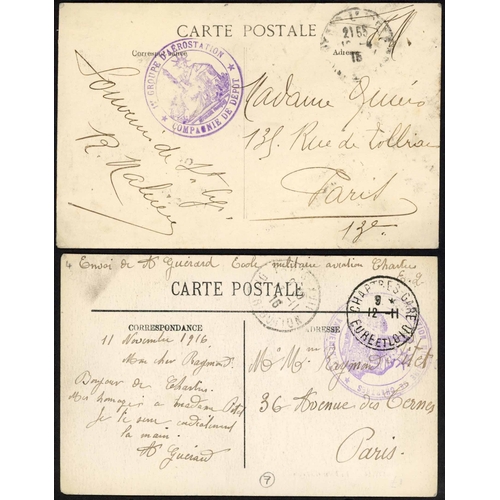 CARTE POSTALE
Correspondance
Adresse
1er GROUPE D'AÉROSTATION
COMPAGNIE DE DÉPOT
21 55
15
Souvenir de St Cyr
R.
Madame
135 Rue de Tolbiac
Paris
13e
Envoi de A Guérard Ecole militaire aviation Chartres
E. &. L
CARTE POSTALE
CORRESPONDANCE
ADRESSE
CHARTRES GARE
9 *
12-11
EURE ET LOIR
11 Novembre 1916
Mon cher Raymond
Bonjour de Chartres.
Mes hommages à madame
Je te serre cordialement
la main.
A Guérard
Mr Mme Raymond
36 Avenue des Ternes
Paris.
7